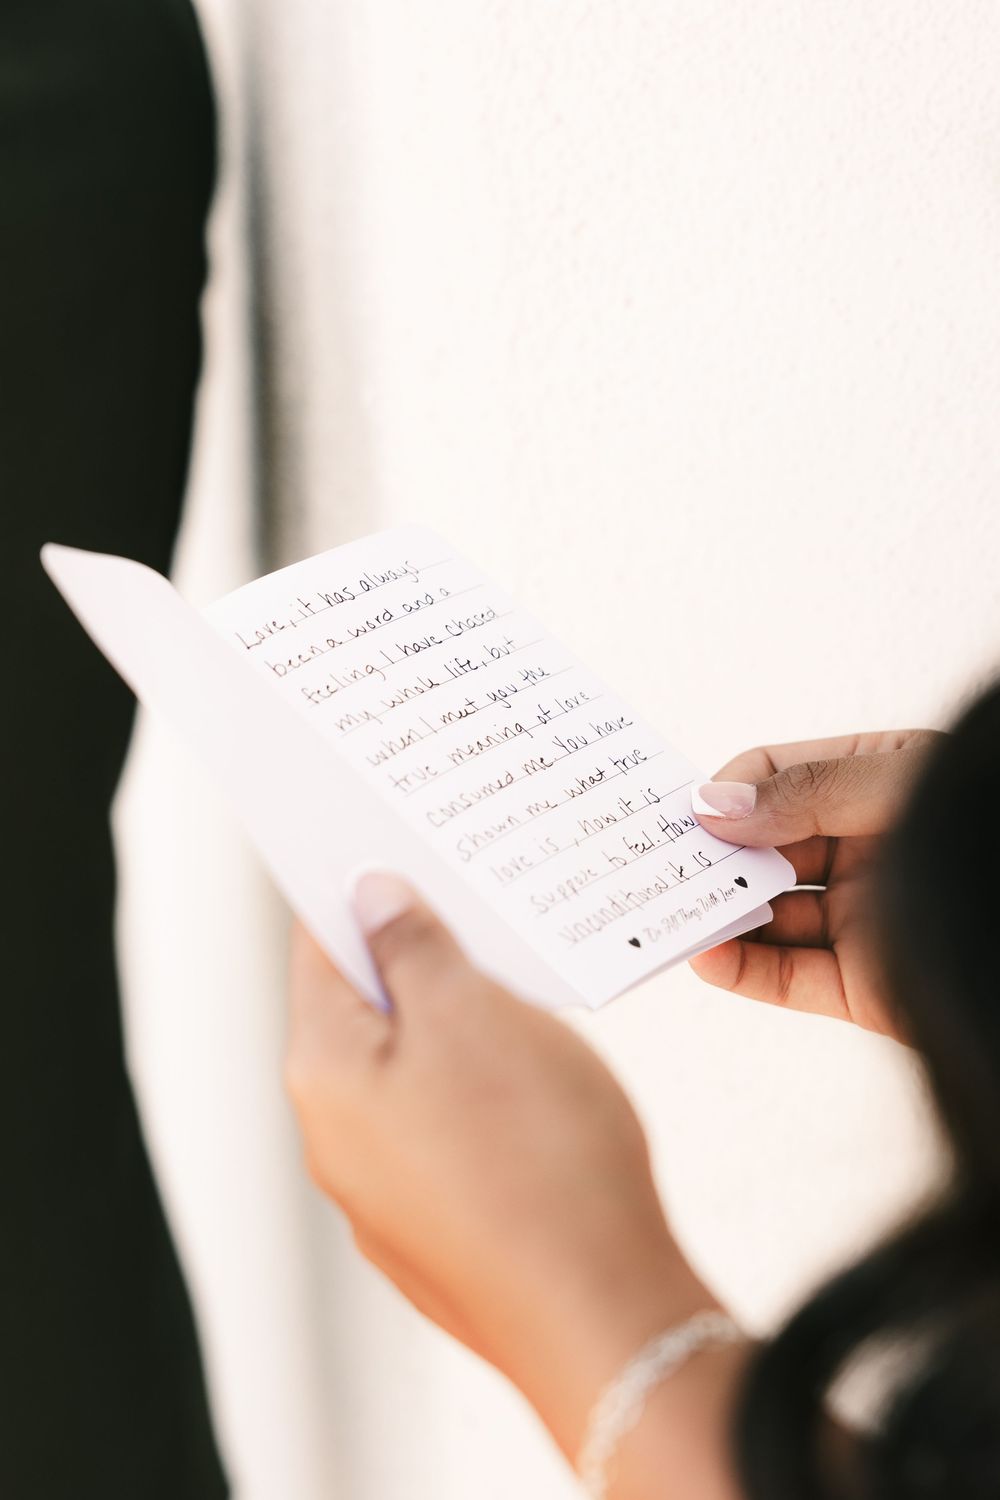 Love, it has always
been a word and a
feeling I have chased
my whole life, but
when I meet you the
true meaning of love
consumed me. You have
shown me what true
love is, how it is
suppose to feel. How
unconditional it is
♥ Do All Things With Love ♥